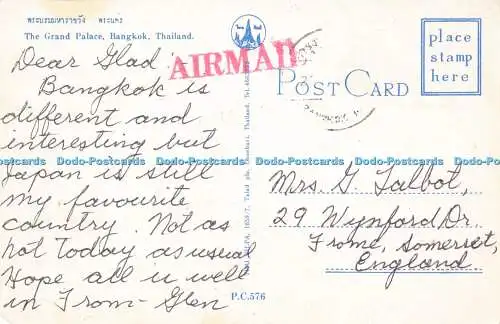 พระบรมมหาราชวัง พระนคร
The Grand Palace, Bangkok, Thailand.
AIRMAIL
POST CARD
place
stamp
here
Dear Glad -
Bangkok is
different and
interesting but
Japan is still
my favourite
country. Not as
hot today as usual
Hope all is well
in Frome - Glen
Mrs. G. Talbot,
29 Wynford Dr.
Frome, Somerset,
England
P.C.576
Dodo-Postcards Dodo-Postcards Dodo-Postcards Dodo-Postcards Dodo-Postcards Dodo-Postcards